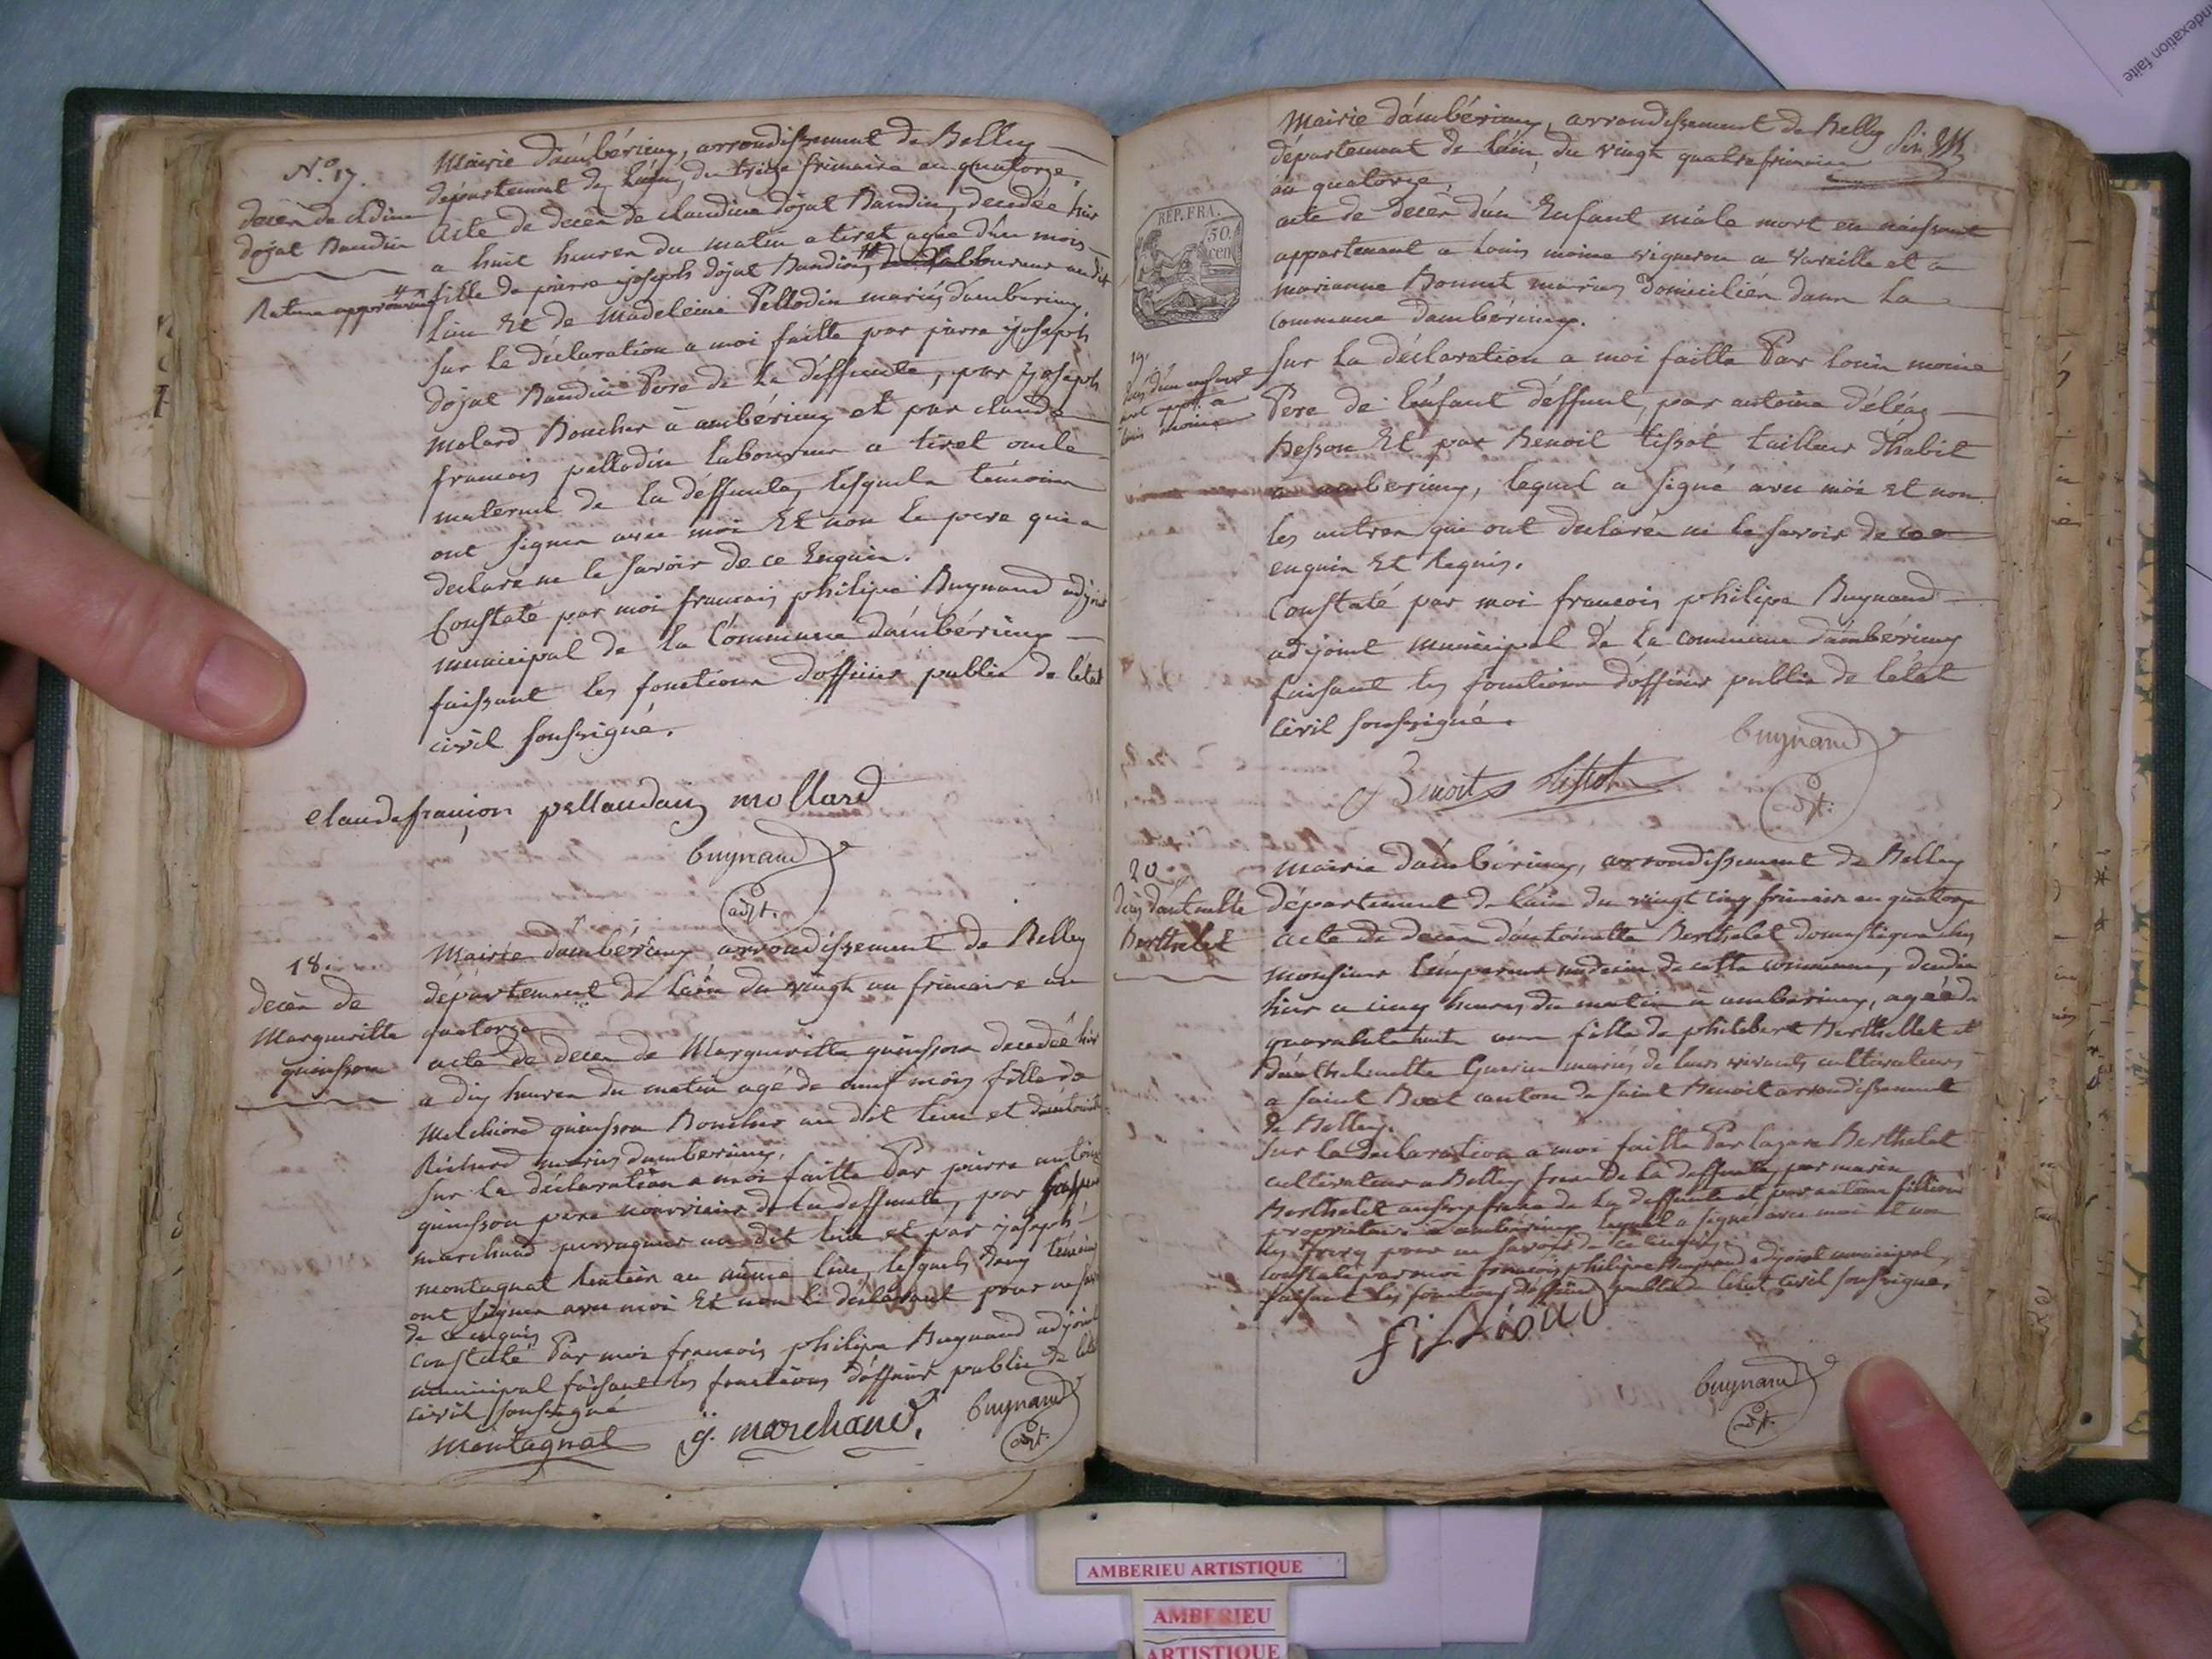 N.° 17.
decès de cldine
dojat Baudin
Rature approuvée
Mairie d'ambérieux, arrondissement de Belley
département de l'ain, du treize frimaire an quatorze,
Acte de decès de claudine dojat Baudin, decedée hier
a huit heures du matin a tiret agée d'un mois
fille de pierre joseph dojat Baudin, laboureur au dit
lieu Et de Madeleine Pellodin mariés d'ambérieux
sur la déclaration a moi faitte par pierre joseph
dojat Baudin Pere de la deffunte, par joseph
molard Boucher à ambérieux et par claude
francois pellodin laboureur a tiret oncle
maternel de la déffunte, lesquels témoins
ont signés avec moi Et non le pere qui a
declaré ne le savoir de ce Enquis.
Constaté par moi francois philipe Buynand adjoint
municipal de la Commune d'ambérieux
faissant les fonctions d'officier public de l'état
civil soussigné.
claude françois pellaudin mollard
buynand
adjt.
18.
decès de
Margueritte
quinsson
Mairie d'ambérieux arrondissement de Belley
département de l'ain du vingt un frimaire an
quatorze
acte de decès de Margueritte quinsson decedée hier
a dix heures du matin agé de neuf mois fille de
Melchiord quinsson Boucher au dit lieu et d'antoinette
Richerd mariés d'ambérieux.
sur la déclaration a moi faitte Par pierre antoine
quinsson pere nourricier de la deffunte, par
marchand perruquier au dit lieu et par joseph
montagnat rentier au même lieu, lesquels deux témoins
ont signés avec moi Et non le déclarant pour ne savoir
de ce enquis
constaté Par moi francois philipe Buynand adjoint
municipal faisant les fonctions d'officier public de l'état
civil soussigné
montagnat g. marchand. buynand
adjt.
Mairie d'ambérieux, arrondissement de Belley
département de l'ain, du vingt quatre frimaire
an quatorze,
REP. FRA.
50.
cen
19.
mort appart. a
louis moine
acte de decès d'un Enfant mâle mort en naissant
appartenant a Louis moine vigneron a Vareille et a
marianne Bonnet mariés domiciliés dans la
commune d'ambérieux.
sur la déclaration a moi faitte Par louis moine
Pere de l'enfant deffunt, par antoine déléaz
Besson Et par Benoit tissot tailleur d'habit
a ambérieux, lequel a signé avec moi et non
les autres qui ont declarés ne le savoir de ce
enquis Et Requis.
Constaté par moi francois philipe Buynand
adjoint municipal de la commune d'ambérieux
faisant les fonctions d'officier public de l'état
civil soussigné.
buynand
adjt.
Benoit tissot
20
Berthelet
Mairie d'ambérieux, arrondissement de Belley
département de l'ain du vingt cinq frimaire an quatorze
acte de decès d'antoinette Berthelet domestique chez
monsieur l'empereur medecin de cette commune, decedée
hier a cinq heures du matin à ambérieux, agée de
quarante huit ans fille de philibert Berthellet et
Guerin mariés de leurs vivants cultivateurs
a saint canton de saint Benoit arrondissement
de Belley.
sur la declaration a moi faitte Par lazare Berthelet
cultivateur a Belley frere de la deffunte, par marin
Berthelet aussy frere de la deffunte et par antoine fillion
proprietaire a ambérieux lequel a signé avec moi et non
les freres pour ne savoir de ce enquis.
constaté par moi francois philipe Buynand adjoint municipal,
faisant les fonctions d'officier public de l'etat civil soussigné.
fillion
buynand
adjt.
indexation faite
AMBERIEU ARTISTIQUE
AMBERIEU
ARTISTIQUE